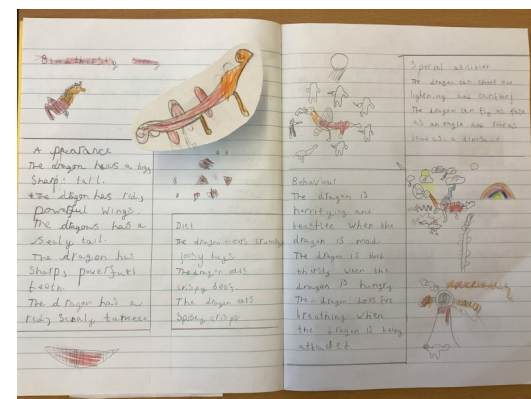 Bloodthirsty
A pearance
The dragon has a big
Sharp: tail.
The dragon has red,
powerful wings.
The dragons has a
scaly tail.
The dragon has
sharp, powerfull
teeth.
The dragon has a
red, scaly
Diet
The dragon eats crunchy
juicy bugs.
The dragon eats
crispy bees.
The dragon eats
Spicey crisps
Behavioul
The dragon is
horrifying and
beastlee when the
dragon is mad.
The dragon is
thirsty when the
dragon is hungry
The dragon does fire
breathing when
the dragon is being
attacked
Special abilities
The dragon can shoot out
lightening and
The dragon can fly as fast
as an eagle and
as a dinosaur